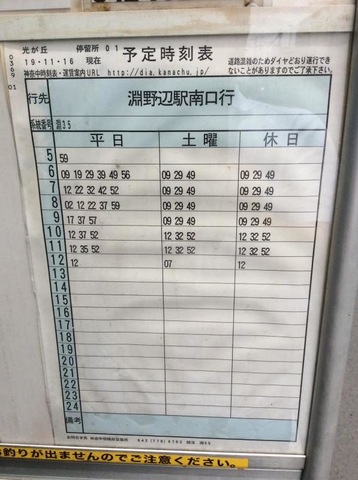 0369 01
光が丘 停留所 01
19-11-16 現在
予定時刻表
道路混雑のためダイヤどおり運行でき
ないことがありますのでご了承下さい。
神奈中時刻表・運賃案内URL http://dia.kanachu.jp/
行先 淵野辺駅南口行
系統番号 淵35
平日 土曜 休日
5 59
6 09 19 29 39 49 56 09 29 49 09 29 49
7 12 22 32 42 52 09 29 49 09 29 49
8 02 12 22 37 59 09 29 49 09 29 49
9 17 37 57 09 29 49 09 29 49
10 12 37 52 12 32 52 12 32 52
11 12 35 52 12 32 52 12 32 52
12 12 07 12
13
14
15
16
17
18
19
20
21
22
23
24
備考
お釣りが出ませんのでご注意ください。